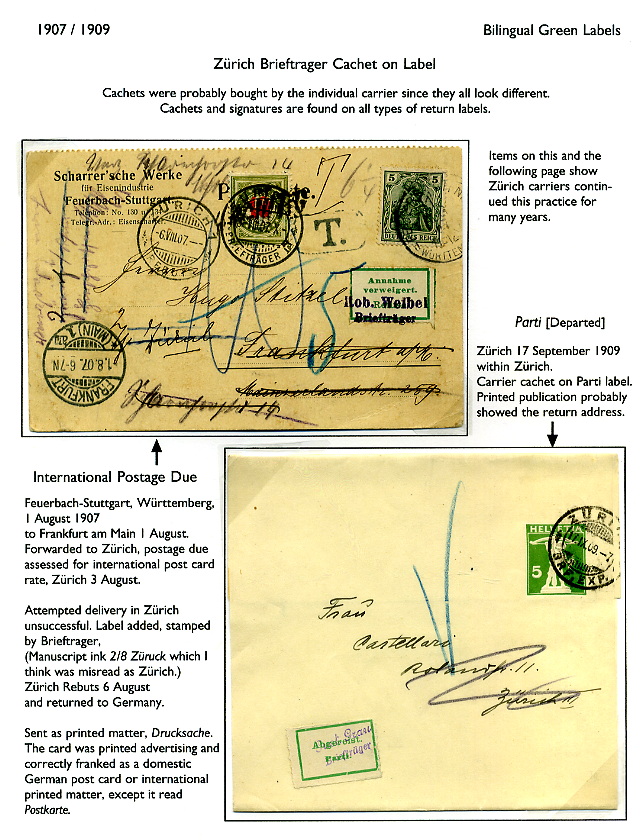 1907 / 1909
Bilingual Green Labels
Zürich Brieftrager Cachet on Label
Cachets were probably bought by the individual carrier since they all look different.
Cachets and signatures are found on all types of return labels.
Scharrer'sche Werke
für Eisenindustrie
Feuerbach-Stuttgart
T.
5 5
DEUTSCHES REICH
Annahme
verweigert.
Rob. Weibel
Briefträger
Hugo Stitzel
Frankfurt a/M.
FRANKFURT
(MAIN) 1.
1.8.07. 6-7N
-6.VIII.07.-
Items on this and the
following page show
Zürich carriers contin-
ued this practice for
many years.
Parti [Departed]
Zürich 17 September 1909
within Zürich.
Carrier cachet on Parti label.
Printed publication probably
showed the return address.
International Postage Due
Feuerbach-Stuttgart, Württemberg,
1 August 1907
to Frankfurt am Main 1 August.
Forwarded to Zürich, postage due
assessed for international post card
rate, Zürich 3 August.
Attempted delivery in Zürich
unsuccessful. Label added, stamped
by Brieftrager,
(Manuscript ink 2/8 Züruck which I
think was misread as Zürich.)
Zürich Rebuts 6 August
and returned to Germany.
Sent as printed matter, Drucksache.
The card was printed advertising and
correctly franked as a domestic
German post card or international
printed matter, except it read
Postkarte.
HELVETIA
5
Frau
Castellari
Rolandstr. 11.
Zürich III
Abgereist.
Parti.
Briefträger